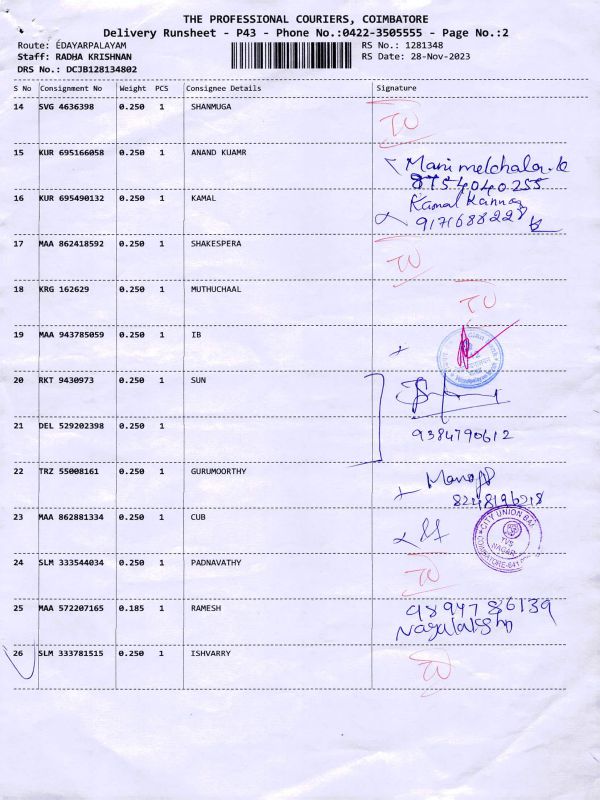 THE PROFESSIONAL COURIERS, COIMBATORE
Delivery Runsheet - P43 - Phone No.:0422-3505555 - Page No.:2
Route: EDAYARPALAYAM RS No.: 1281348
Staff: RADHA KRISHNAN RS Date: 28-Nov-2023
DRS No.: DCJB128134802
S No Consignment No Weight PCS Consignee Details Signature
14 SVG 4636398 0.250 1 SHANMUGA
15 KUR 695166058 0.250 1 ANAND KUAMR
8754040255
16 KUR 695490132 0.250 1 KAMAL Kamal Kannan
9171688228
17 MAA 862418592 0.250 1 SHAKESPERA
18 KRG 162629 0.250 1 MUTHUCHAAL
19 MAA 943785059 0.250 1 IB
20 RKT 9430973 0.250 1 SUN
21 DEL 529202398 0.250 1
9384790612
22 TRZ 55008161 0.250 1 GURUMOORTHY
23 MAA 862881334 0.250 1 CUB
CITY UNION BANK
TVS
NAGAR
24 SLM 333544034 0.250 1 PADNAVATHY
25 MAA 572207165 0.185 1 RAMESH 9894786139
26 SLM 333781515 0.250 1 ISHVARRY